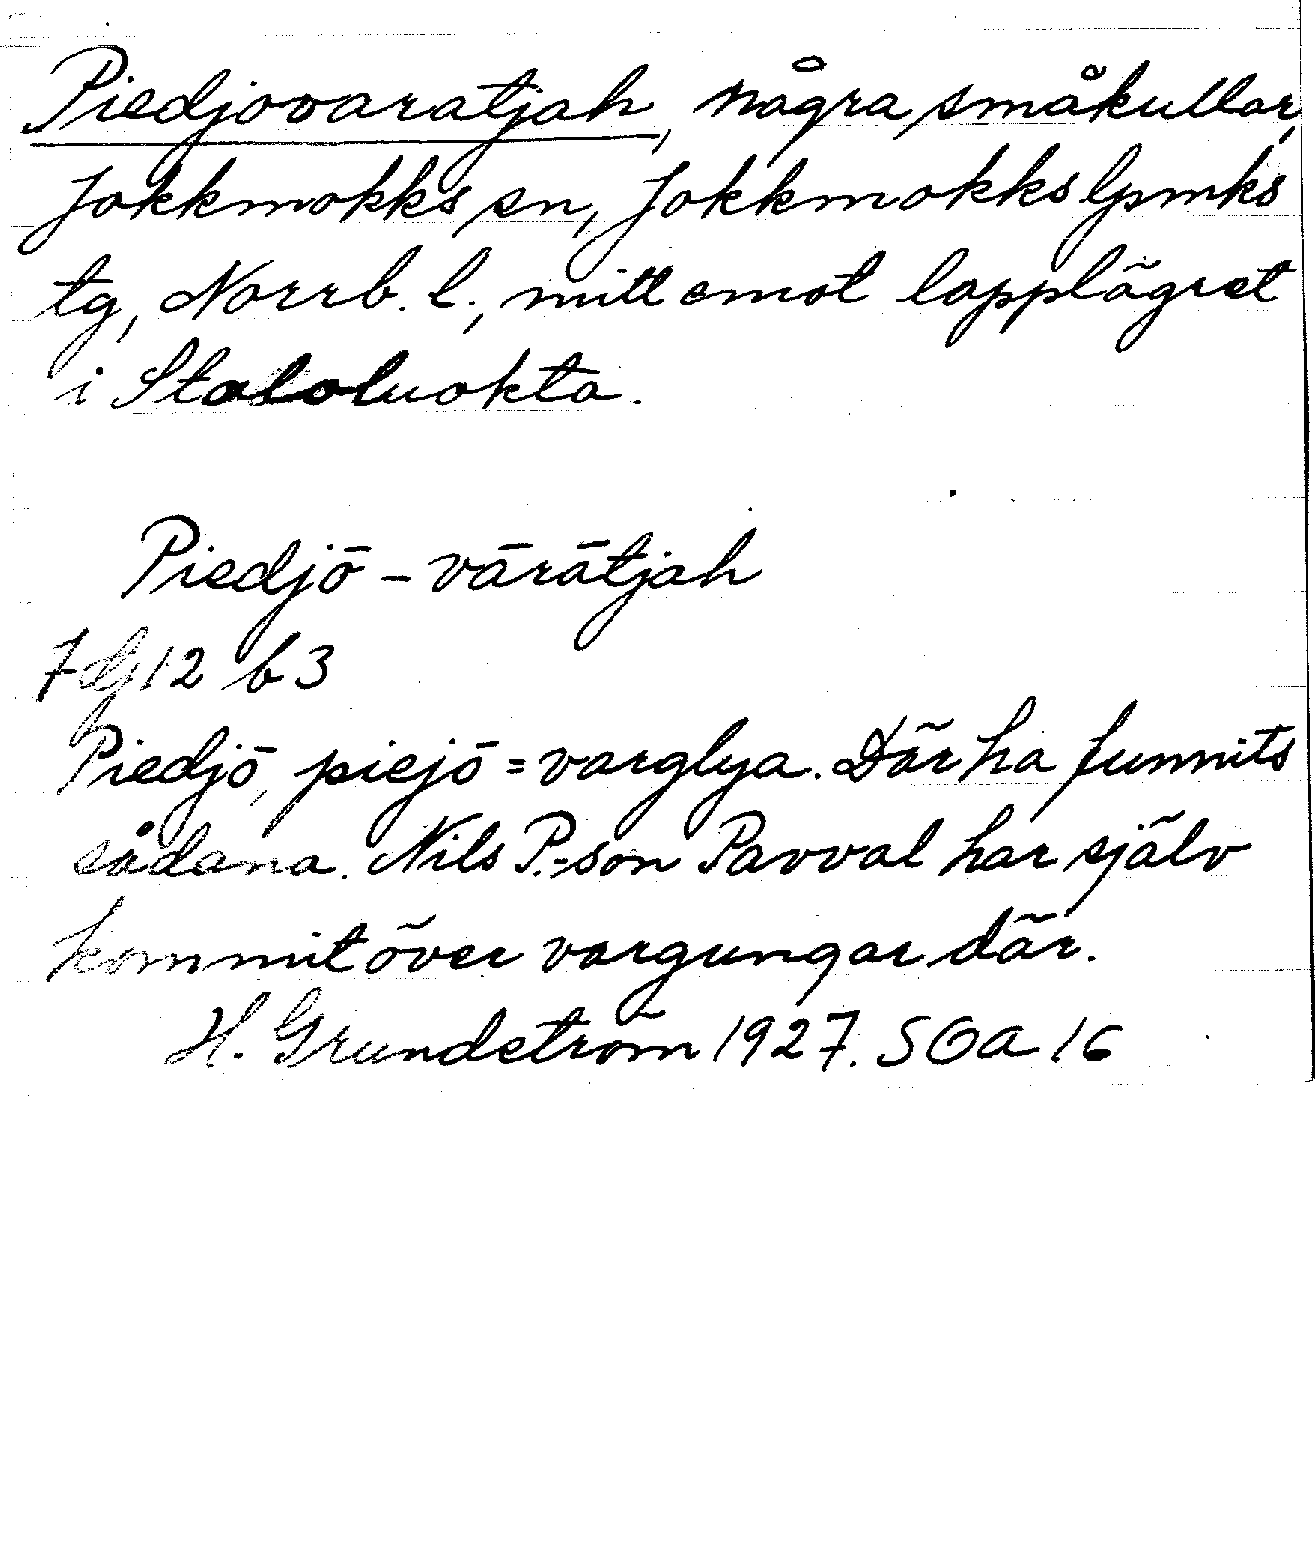 Piedjovaratjah, några småkullar,
Jokkmokks sn, Jokkmokks lpmks
tg, Norrb. l., mitt emot lapplägret
i Staloluokta.
Piedjō - vārātjah
7 G 12 b 3
Piedjō, piejō = varglya. Där ha funnits
sådana. Nils P:son Pavval har själv
kommit över vargungar där.
H. Grundström 1927. SOA 16